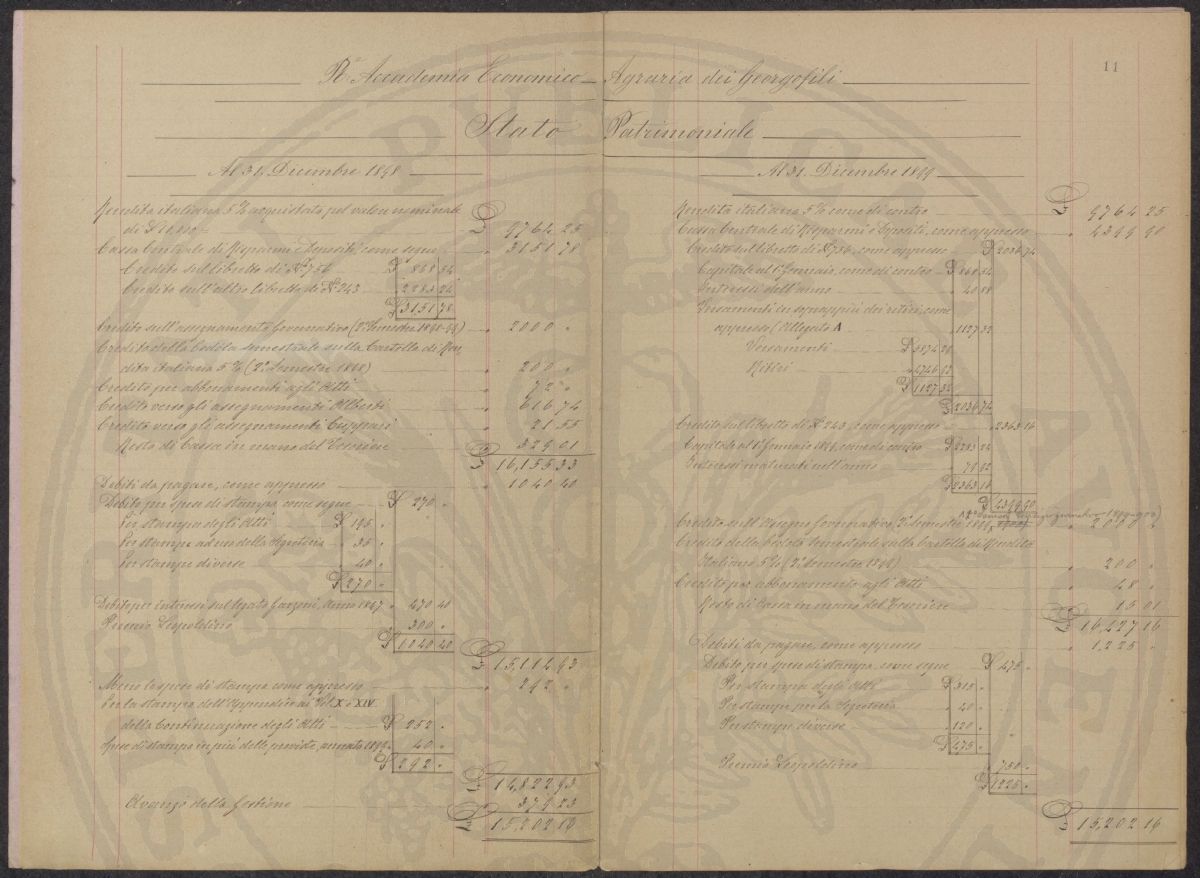 11
R.ª Accademia Economico - Agraria dei Georgofili
Stato Patrimoniale
Al 31. Dicembre 1898
Rendita italiana 5% acquistata pel valor nominale
di £ £ 9764 25
Cassa Centrale di Risparmi e Depositi, come segue " 3151 78
Credito sul libretto di N.º 756 £ 868 54
Credito sull'altro libretto di N.º 243 " 2283 24
£ 3151 78
Credito sull'assegnamento Governativo (2.º Semestre 1898-99) " 2000 "
Credito della Cedola semestrale sulla Cartella di Ren
dita italiana 5% (2.º Semestre 1898) " 200 "
Credito per abbonamenti agli Atti " 72 "
Credito verso gli assegnamenti Alberti " 616 74
Credito verso gli assegnamenti Cuppari " 21 55
Resto di Cassa in mano del Tesoriere " 329 01
£ 16,155 33
Debiti da pagare, come appresso " 1040 40
Debito per spese di stampa come segue £ 270 "
Per stampa degli Atti £ 195 "
Per stampe ad uso della Segreteria " 35 "
Per stampe diverse " 40 "
£ 270 "
Debito per interessi sul legato Garzoni, anno 1897 " 470 40
Premio Leopoldino " 300 "
£ 1040 40
£ 15,114 93
Meno le spese di stampa come appresso " 292 "
Per la stampa dell'Appendice ai Vol. X e XIV
della Continuazione degli Atti £ 252 "
Spese di stampa in più delle previste, annata 1898 " 40 "
£ 292 "
£ 14,822 93
Avanzo della Gestione " 379 23
£ 15,202 16
Al 31. Dicembre 1899
Rendita italiana 5% come di contro £ 9764 25
Cassa Centrale di Risparmi e Depositi, come appresso " 4399 90
Credito sul libretto di N.º 756, come appresso £ 2036 74
Capitale al 1º Gennaio, come di contro £ 868 54
Interessi dell'anno " 40 88
Versamenti in più dei ritiri, come
appresso (Allegato A " 1127 32
Versamenti £ 5874 25
Ritiri " 4746 93
£ 1127 32
£ 2036 74
Credito sul libretto di N.º 243, come appresso " 2363 16
Capitale al 1º Gennaio 1899, come di contro £ 2283 24
Interessi maturati nell'anno " 79 92
£ 2363 16
£ 4399 90
Credito sull'Assegno Governativo, 2.º semestre 1899 " 2000 "
Credito della Cedola semestrale sulla Cartella di Rendita
Italiana 5% (2.º semestre 1899) " 200 "
Credito per abbonamento agli Atti " 48 "
Resto di Cassa in mano del Tesoriere " 15 01
£ 16,427 16
Debiti da pagare, come appresso " 1,225 "
Debito per spese di stampa, come segue £ 475 "
Per stampa degli Atti £ 315 "
Per stampe per la Segreteria " 40 "
Per stampe diverse " 120 "
£ 475 "
Premio Leopoldino " 750 "
£ 1225 "
£ 15,202 16